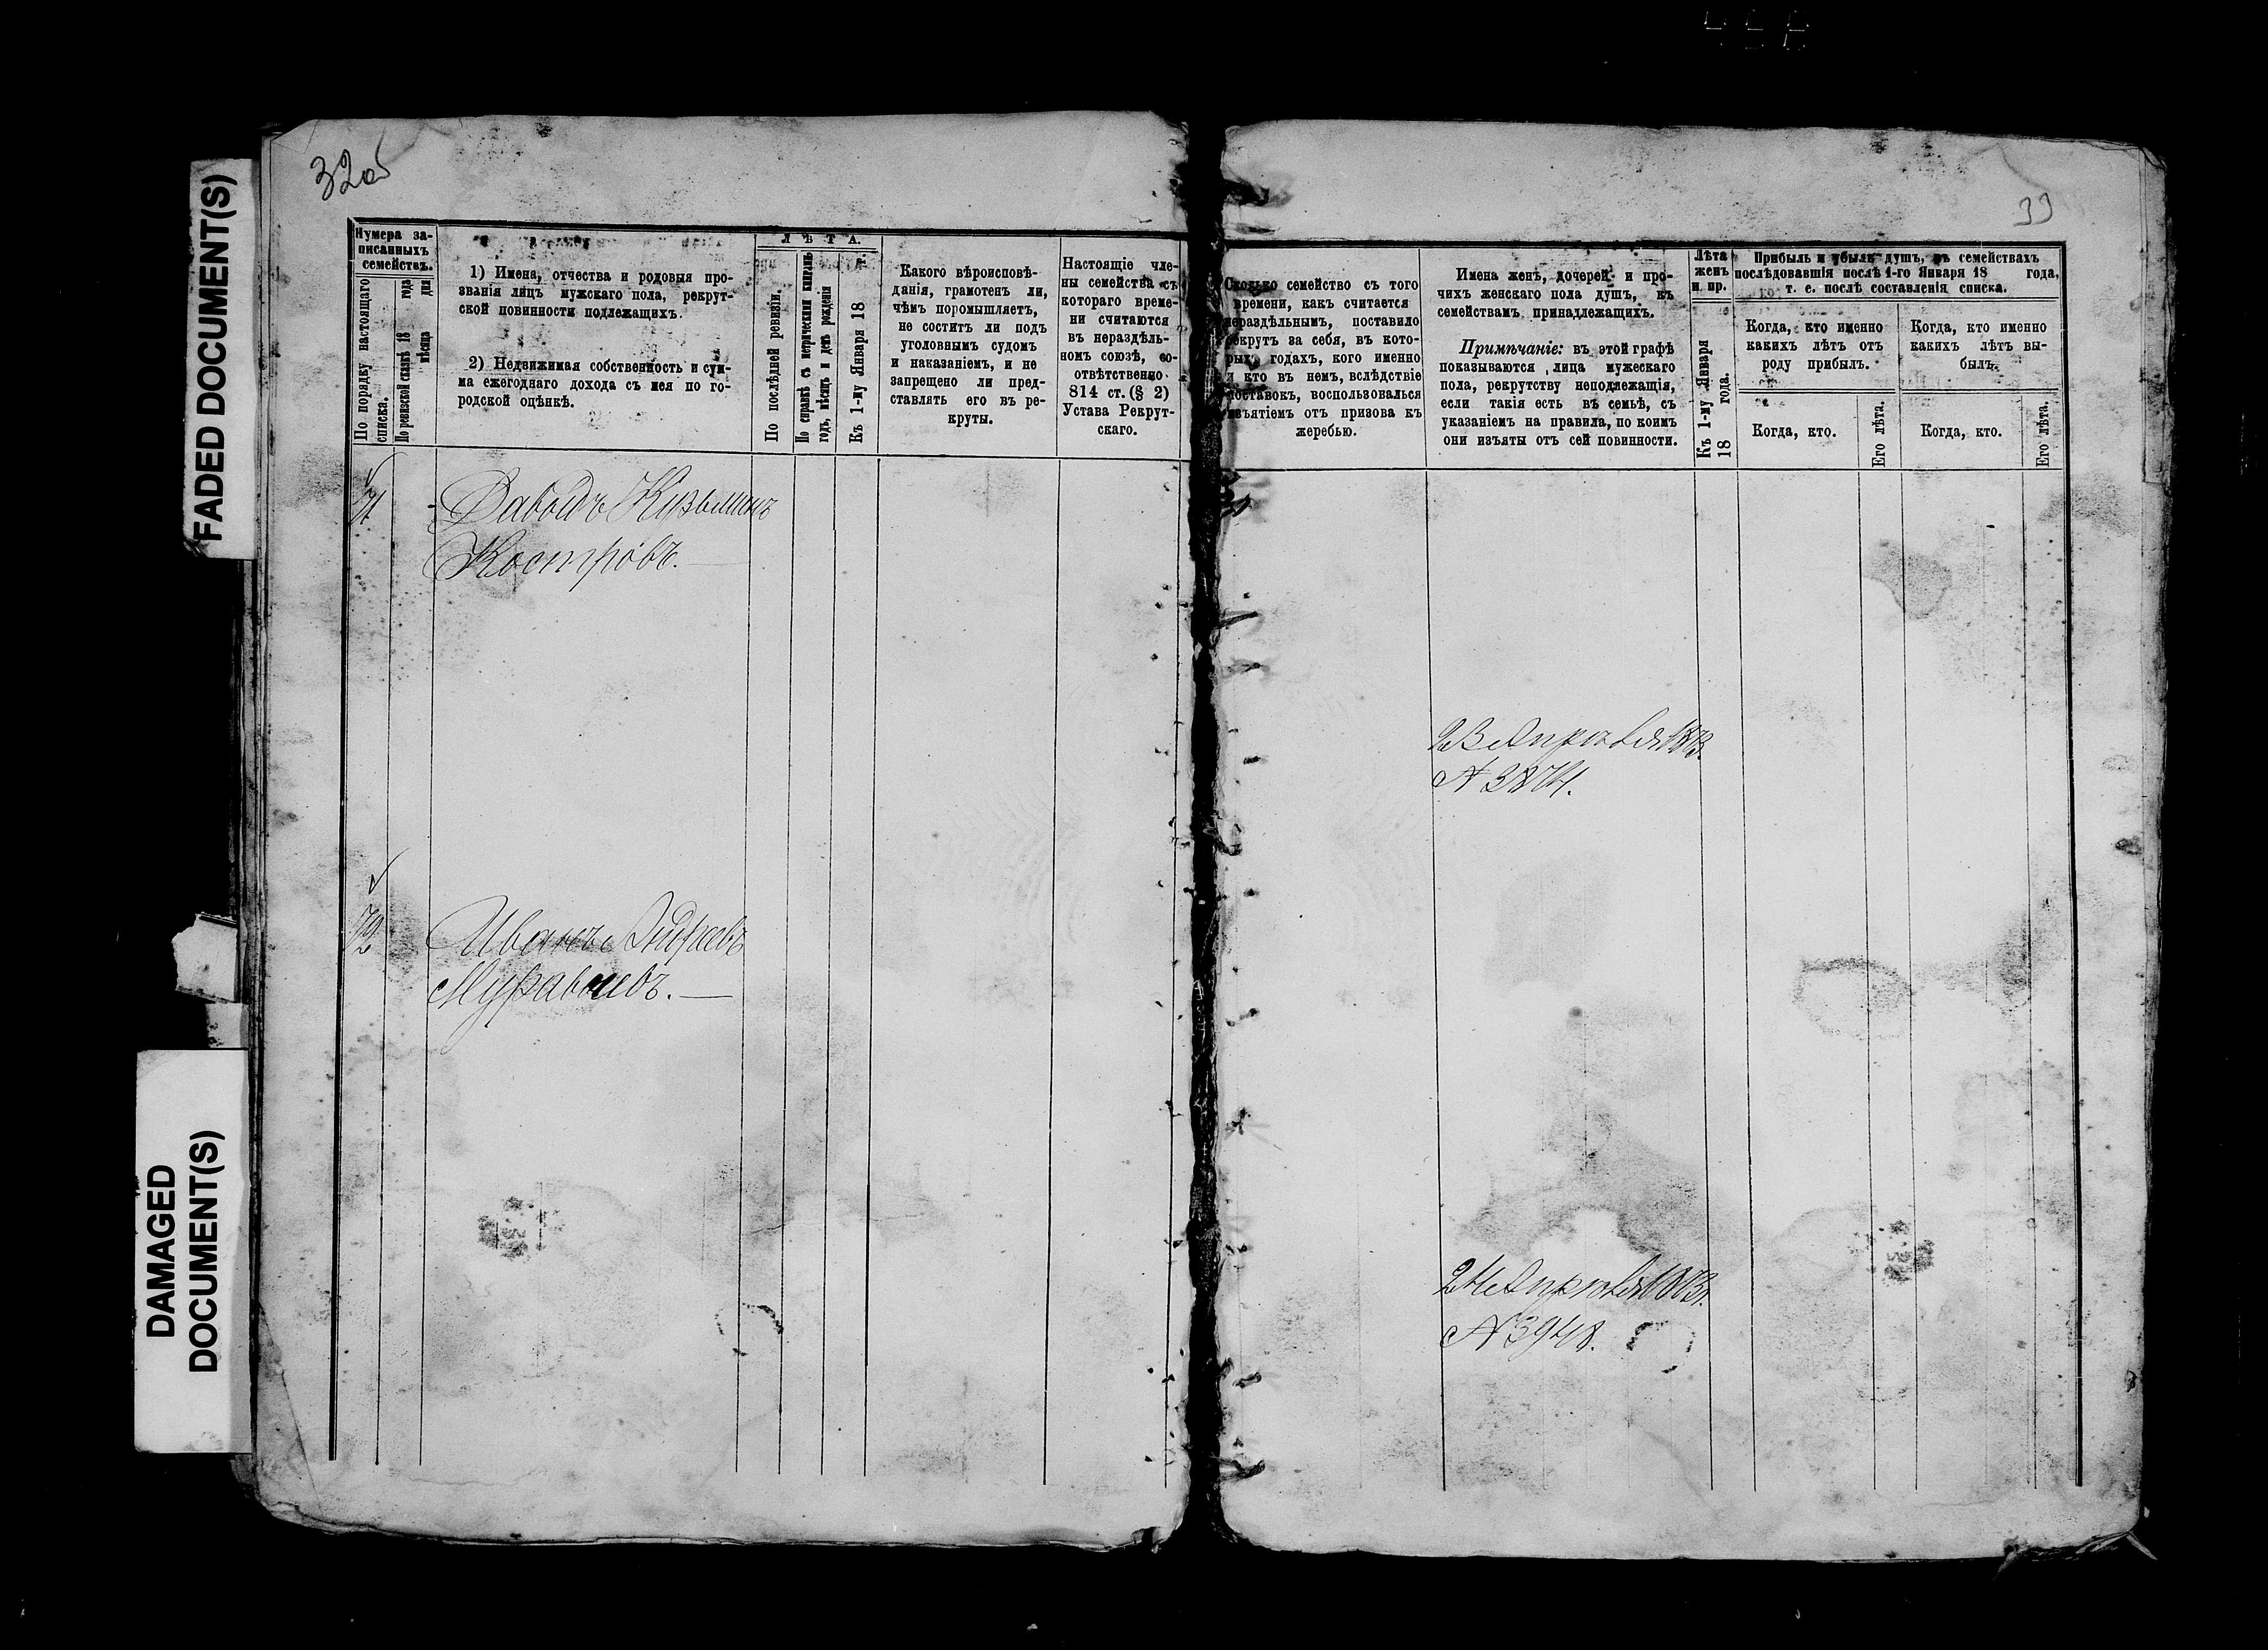 FADED DOCUMENT(S)
DAMAGED
DOCUMENT(S)
32об
Нумера за-
писанныхъ
семействъ.
По порядку настоящаго
списка.
По ревизской сказкѣ 18 года
мѣсяца дня
1) Имена, отчества и родовыя про-
званія лицъ мужскаго пола, рекрут-
ской повинности подлежащихъ.
2) Недвижимая собственность и сум-
ма ежегоднаго дохода съ нея по го-
родской оцѣнкѣ.
ЛѢТА.
По послѣдней ревизіи.
По справкѣ съ метрическими книгами
годъ, мѣсяцъ и день рожденія
Къ 1-му Января 18 г.
Какого вѣроисповѣ-
данія, грамотенъ ли,
чѣмъ поромышляетъ,
не соститъ ли подъ
уголовнымъ судомъ
и наказаніемъ, и не
запрещено ли пред-
ставлять его въ ре-
круты.
Настоящіе чле-
ны семейства съ
котораго време-
ни считаются
въ нераздѣль-
номъ союзѣ, со-
отвѣтственно
814 ст. (§ 2)
Устава Рекрут-
скаго.
71
Давыдъ Кузьминъ
Костровъ.
72
Иванъ Андреевъ
Муравьевъ.
33
Сколько семейство съ того
времени, какъ считается
нераздѣльнымъ, поставило
рекрутъ за себя, въ кото-
рыхъ годахъ, кого именно
и кто въ немъ, вслѣдствіе
поставокъ, воспользовался
изъятіемъ отъ призова къ
жеребью.
Имена женъ, дочерей и про-
чихъ женскаго пола душъ, къ
семействамъ принадлежащихъ.
Примѣчаніе: въ этой графѣ
показываются лица мужескаго
пола, рекрутству неподлежащія,
если такія есть въ семьѣ, съ
указаніемъ на правила, по коимъ
они изъяты отъ сей повинности.
Лѣта
женъ
и пр.
Къ 1-му Января
18 года.
Прибыль и убыль душъ, въ семействахъ
послѣдовавшія послѣ 1-го Января 18 года,
т. е. послѣ составленія списка.
Когда, кто именно
какихъ лѣтъ отъ
роду прибылъ.
Когда, кто именно
какихъ лѣтъ вы-
былъ.
Когда, кто.
Его лѣта.
Когда, кто.
Его лѣта.
23 Апрѣля 1873.
№ 3874.
24 Апрѣля 1873.
№ 3948.